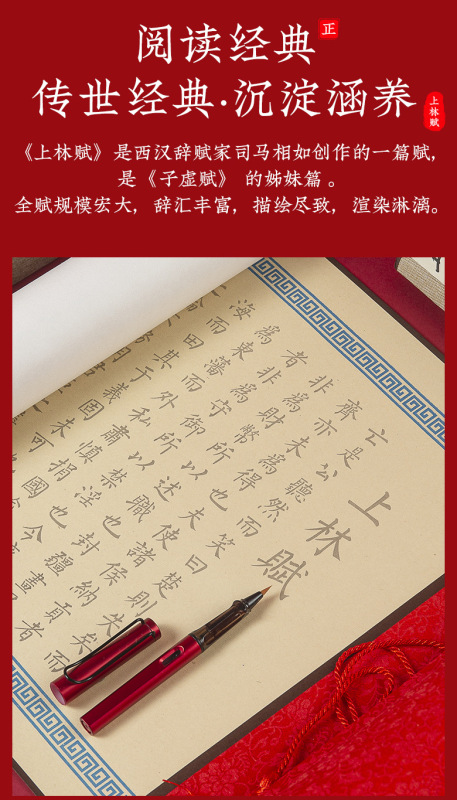 阅读经典
正
传世经典·沉淀涵养
上林赋
《上林赋》是西汉辞赋家司马相如创作的一篇赋，
是《子虚赋》的姊妹篇。
全赋规模宏大，辞汇丰富，描绘尽致，渲染淋漓。
上林賦
亡是公聽然而笑曰楚則失矣而
齊亦未為得也夫使諸候納貢者
非為財幣所以述職也封疆畫
者非為守御所以禁淫也今
為東藩而外私肅慎捐國
海而田其于義固未可